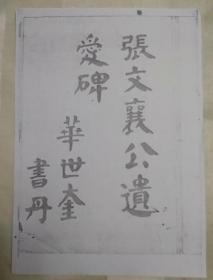 張文襄公遺
愛碑
華世奎
書丹